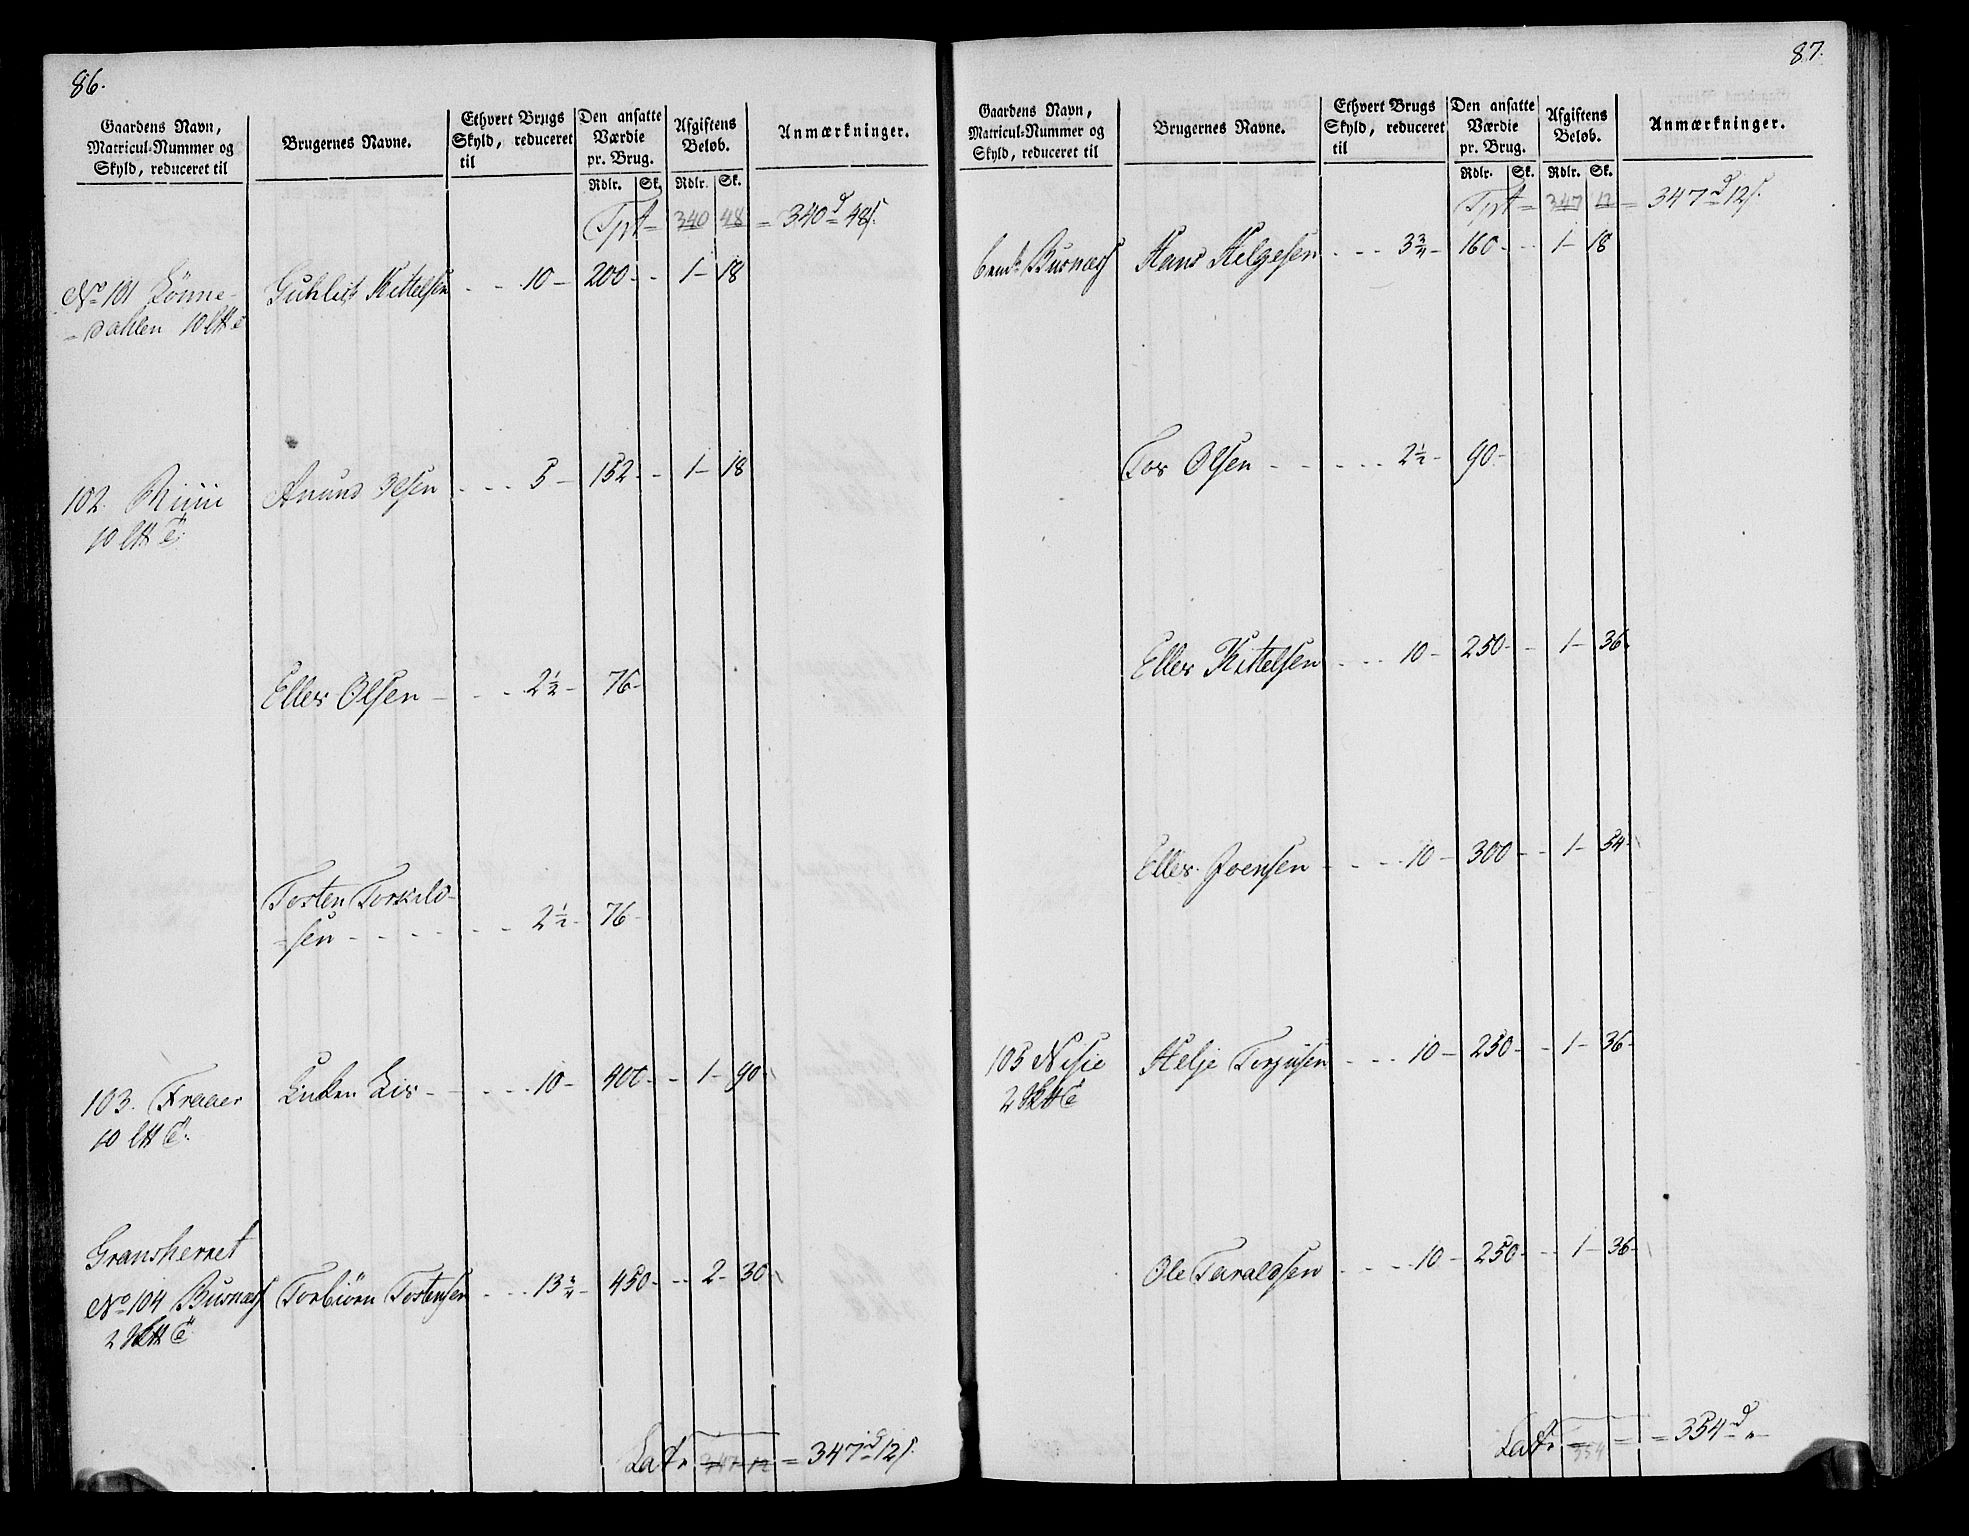 86.
Gaardens Navn, Matricul-Nummer og Skyld, reduceret til
Brugernes Navne.
Ethvert Brugs Skyld, reduceret til
Den ansatte Værdie pr. Brug.
Afgiftens Beløb.
Anmærkninger.
Rdlr. Sk. Rdlr. Sk.
Tpt 340 48 = 340 d 48 s.
No 101 Lønne- Gunlik Kittelsen - - 10 - 200 - - 1 - 18
= dahlen 10
102. Anund Olsen - - - 5 - 152 - - 1 - 18
10
Elles Olsen - - - 2½ - 76 -
Tosten Torkild-
=sen - - - - - - 2½ - 76 -
103. Fraaer - - - 10 - 400 - - 1 - 90
10
Gransherret
No 104 Busnæs Torbiørn Tostensen - - - 13¾ - 450 - - 2 - 30
2
Lat. 347 12 = 347 d 12 s.
87.
Gaardens Navn, Matricul-Nummer og Skyld, reduceret til
Brugernes Navne.
Ethvert Brugs Skyld, reduceret til
Den ansatte Værdie pr. Brug.
Afgiftens Beløb.
Anmærkninger.
Rdlr. Sk. Rdlr. Sk.
Tpt = 347 12 = 347 d 12 s.
Busnæs Hans Helgesen - - - 3¾ - 160 - - 1 - 18
Tor Olsen - - - - - 2½ - 90 -
Elles Kittelsen - - - 10 - 250 - - 1 - 36
Elles Joensen - - - - 10 - 300 - - 1 - 54
105 Nisie Helje Torjusen - - - 10 - 250 - - 1 - 36
2
Ole Taraldsen - - - - 10 - 250 - - 1 - 36
Lat. 354 = 354 d